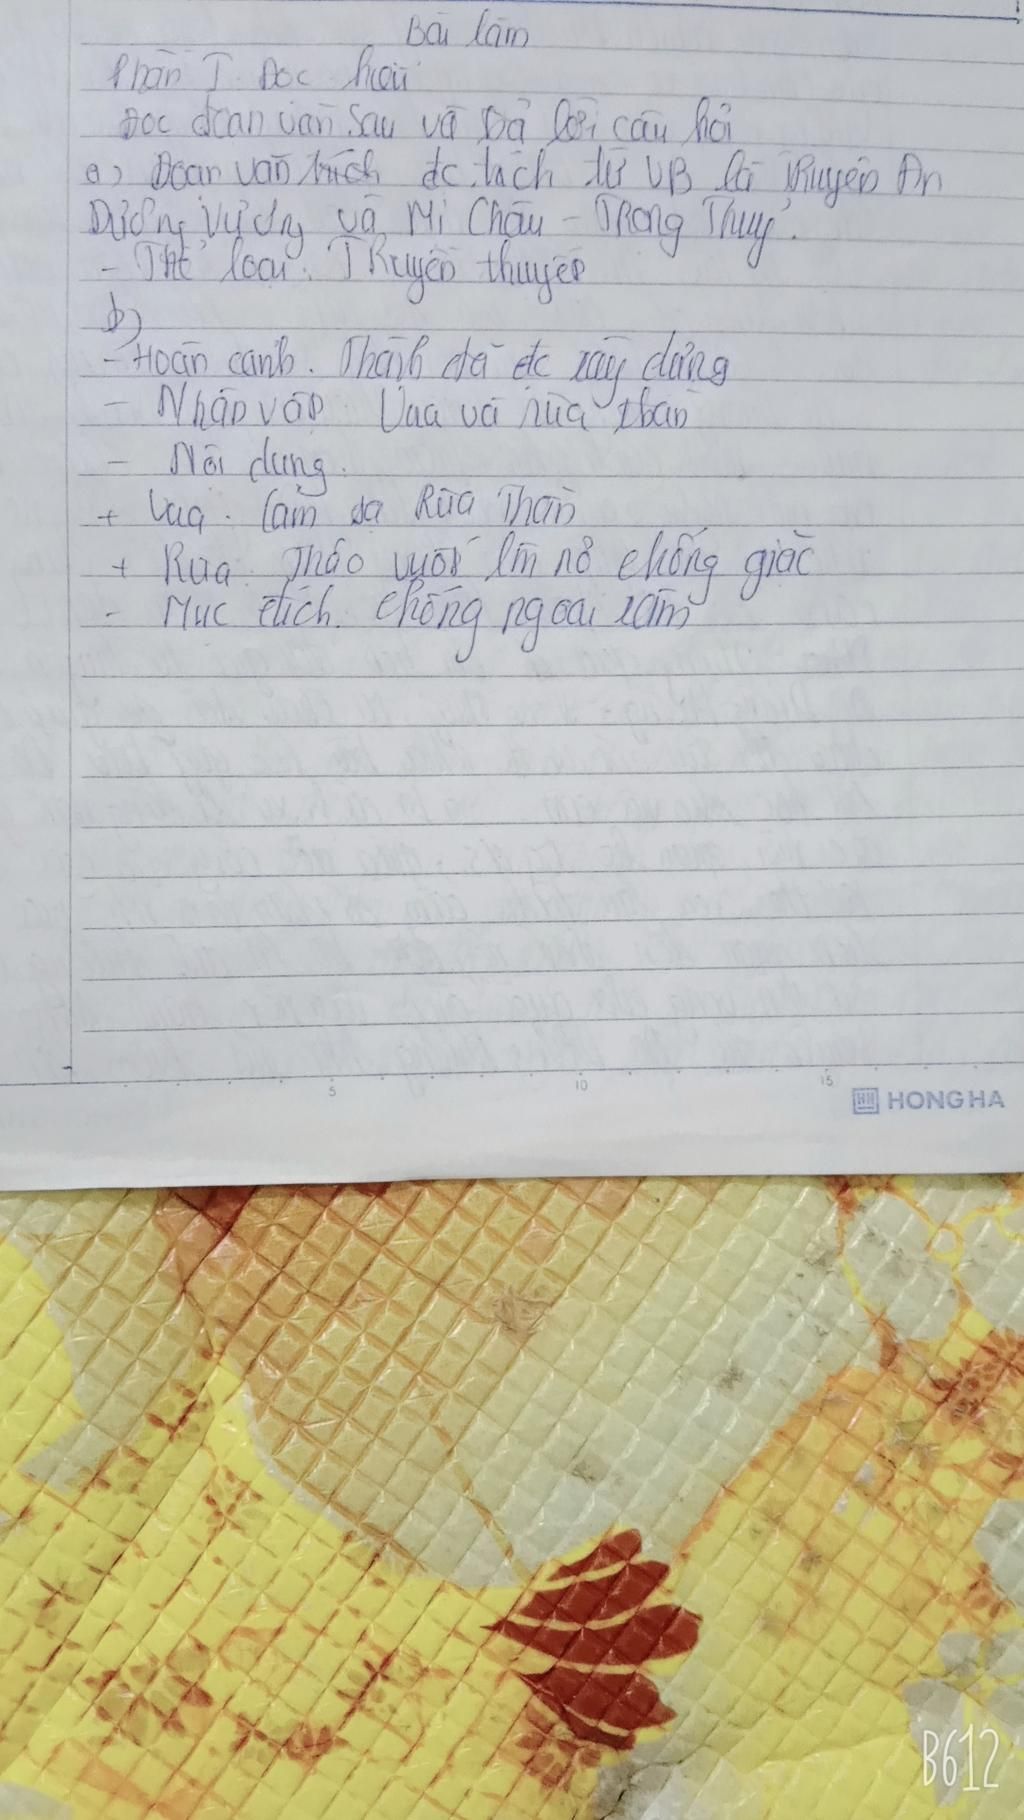 Bài làm
Phần I Đọc hiểu
Đọc đoạn văn sau và trả lời câu hỏi
a) Đoạn văn trích đc tách từ VB là Truyện An
Dương Vương và Mị Châu - Trọng Thuỷ.
- Thể loại. Truyền thuyết
b)
- Hoàn cảnh. Thành đã đc xây dựng
- Nhân vật Vua và rùa thần
- Nội dung.
+ Vua. Cảm tạ Rùa Thần
+ Rùa. Tháo vuốt làm nỏ chống giặc
- Mục đích. Chống ngoại xâm
5 10 15
HONG HA
B612